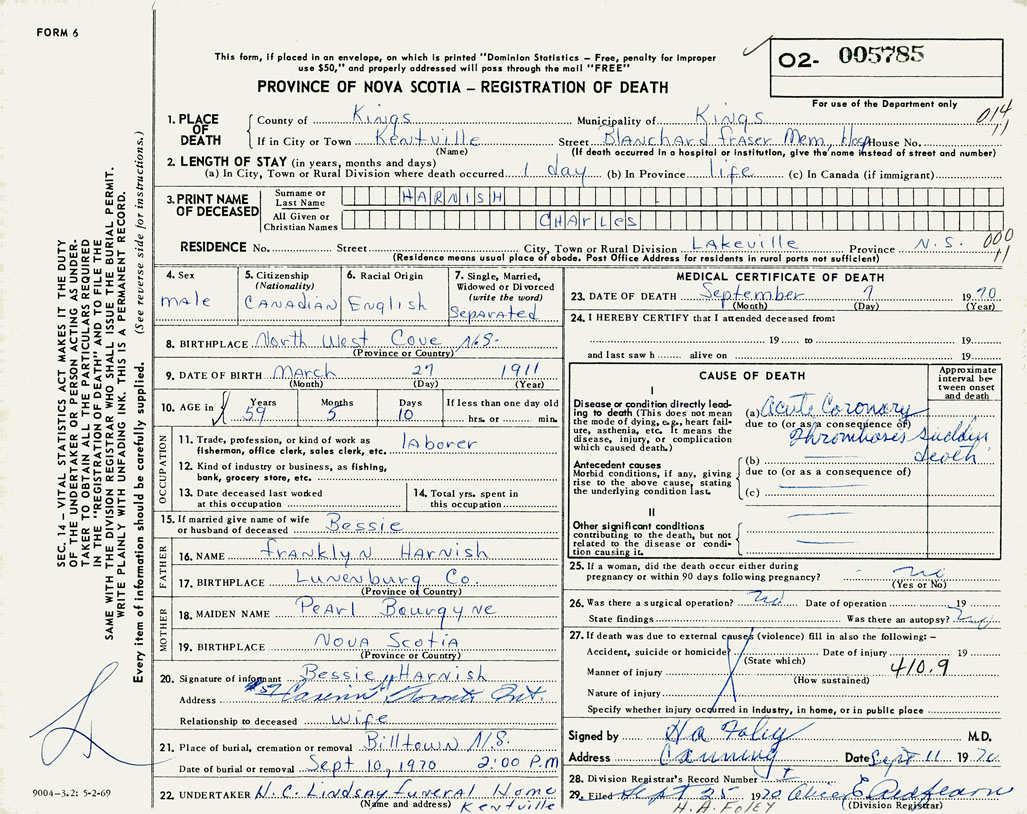 FORM 6
This form, if placed in an envelope, on which is printed "Dominion Statistics – Free, penalty for improper
use $50," and properly addressed will pass through the mail "FREE"
O2- 005785
PROVINCE OF NOVA SCOTIA – REGISTRATION OF DEATH
For use of the Department only
1. PLACE OF DEATH
County of Kings Municipality of Kings 014
If in City or Town Kentville Street Blanchard Fraser Mem, Hosp House No. 11
(Name) (If death occurred in a hospital or institution, give the name instead of street and number)
2. LENGTH OF STAY (in years, months and days)
(a) In City, Town or Rural Division where death occurred 1 day (b) In Province life (c) In Canada (if immigrant)
3. PRINT NAME OF DECEASED
Surname or Last Name HARNISH
All Given or Christian Names CHARLES
RESIDENCE No. Street City, Town or Rural Division Lakeville Province N.S. 000
(Residence means usual place of abode. Post Office Address for residents in rural parts not sufficient) 11
4. Sex
male
5. Citizenship
(Nationality)
CANADIAN
6. Racial Origin
English
7. Single, Married,
Widowed or Divorced
(write the word)
Separated
8. BIRTHPLACE North West Cove N.S.
(Province or Country)
9. DATE OF BIRTH March 27 1911
(Month) (Day) (Year)
10. AGE in Years Months Days If less than one day old
59 5 10 hrs. or min.
OCCUPATION
11. Trade, profession, or kind of work as
fisherman, office clerk, sales clerk, etc. laborer
12. Kind of industry or business, as fishing,
bank, grocery store, etc.
13. Date deceased last worked
at this occupation
14. Total yrs. spent in
this occupation
15. If married give name of wife
or husband of deceased Bessie
FATHER
16. NAME Franklyn Harnish
17. BIRTHPLACE Lunenburg Co.
(Province or Country)
MOTHER
18. MAIDEN NAME Pearl Bourgyne
19. BIRTHPLACE Nova Scotia
(Province or Country)
20. Signature of informant Bessie Harnish
Address Toronto Ont.
Relationship to deceased wife
21. Place of burial, cremation or removal Billtown N.S.
Date of burial or removal Sept 10, 1970 2:00 P.M
22. UNDERTAKER H. C. Lindsay Funeral Home
(Name and address) Kentville
MEDICAL CERTIFICATE OF DEATH
23. DATE OF DEATH September 7 1970
(Month) (Day) (Year)
24. I HEREBY CERTIFY that I attended deceased from:
19 to 19
and last saw h alive on 19
CAUSE OF DEATH
Approximate
interval be-
tween onset
and death
I
Disease or condition directly lead-
ing to death (This does not mean
the mode of dying, e.g., heart fail-
ure, asthenia, etc. It means the
disease, injury, or complication
which caused death.)
(a) Acute Coronary
due to (or as a consequence of)
Thromboses sudden
death
Antecedent causes
Morbid conditions, if any, giving
rise to the above cause, stating
the underlying condition last.
(b)
due to (or as a consequence of)
(c)
II
Other significant conditions
contributing to the death, but not
related to the disease or condi-
tion causing it.
25. If a woman, did the death occur either during
pregnancy or within 90 days following pregnancy? no
(Yes or No)
26. Was there a surgical operation? no Date of operation 19
State findings Was there an autopsy?
27. If death was due to external causes (violence) fill in also the following: –
Accident, suicide or homicide? Date of injury 19
(State which)
Manner of injury 410.9
(How sustained)
Nature of injury
Specify whether injury occurred in industry, in home, or in public place
Signed by H A Foley M.D.
Address Canning Date Sept 11 1970
28. Division Registrar's Record Number
29. Filed Sept 25 1970
H.A. FOLEY (Division Registrar)
SEC. 14 – VITAL STATISTICS ACT MAKES IT THE DUTY
OF THE UNDERTAKER OR PERSON ACTING AS UNDER-
TAKER TO OBTAIN ALL THE PARTICULARS REQUIRED
IN THE "REGISTRATION OF DEATH" AND TO FILE THE
SAME WITH THE DIVISION REGISTRAR WHO SHALL ISSUE THE BURIAL PERMIT.
WRITE PLAINLY WITH UNFADING INK. THIS IS A PERMANENT RECORD.
Every item of information should be carefully supplied. (See reverse side for instructions.)
9004–3.2: 5-2-69